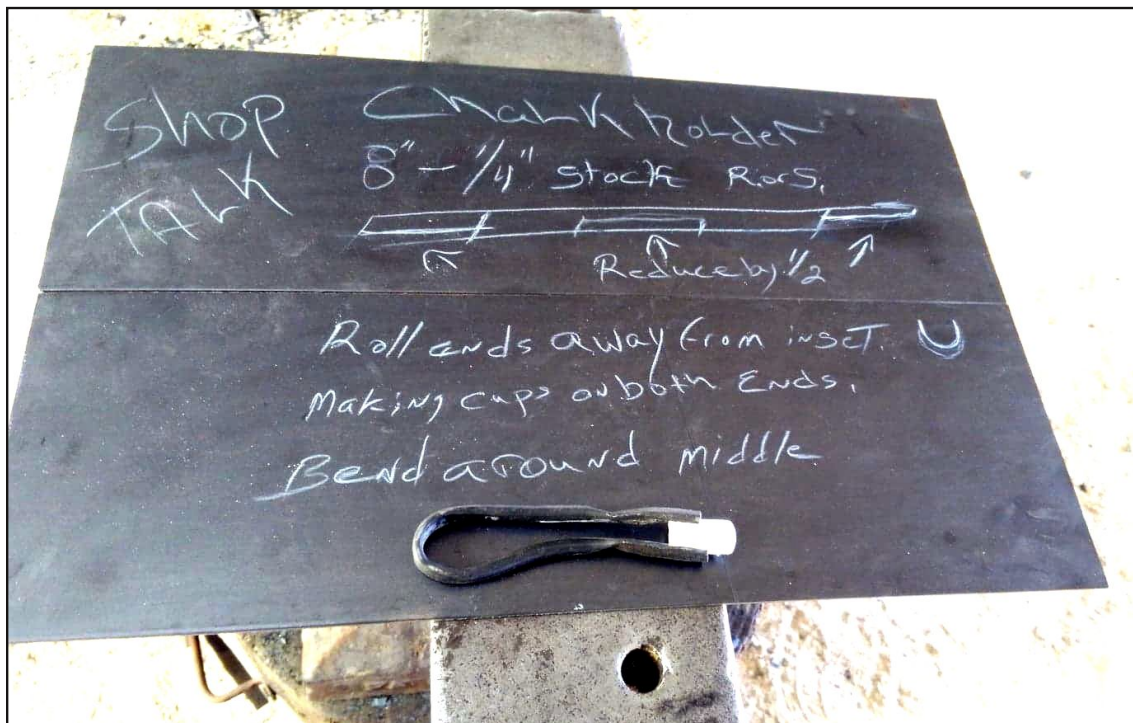 Shop
TALK
Chalk holder
8" - 1/4" stock R.or S.
Reduce by 1/2
Roll ends away from inset. U
Making cups on both Ends.
Bend around middle